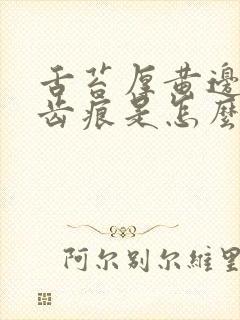 舌苔厚黄邊
齿痕是怎麼
阿尔别尔維里